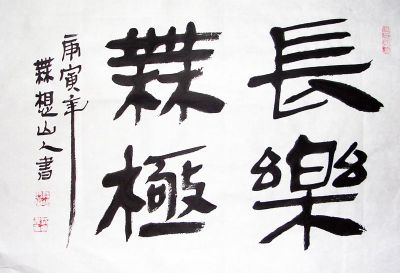 長樂
無極
庚寅年
無想山人書